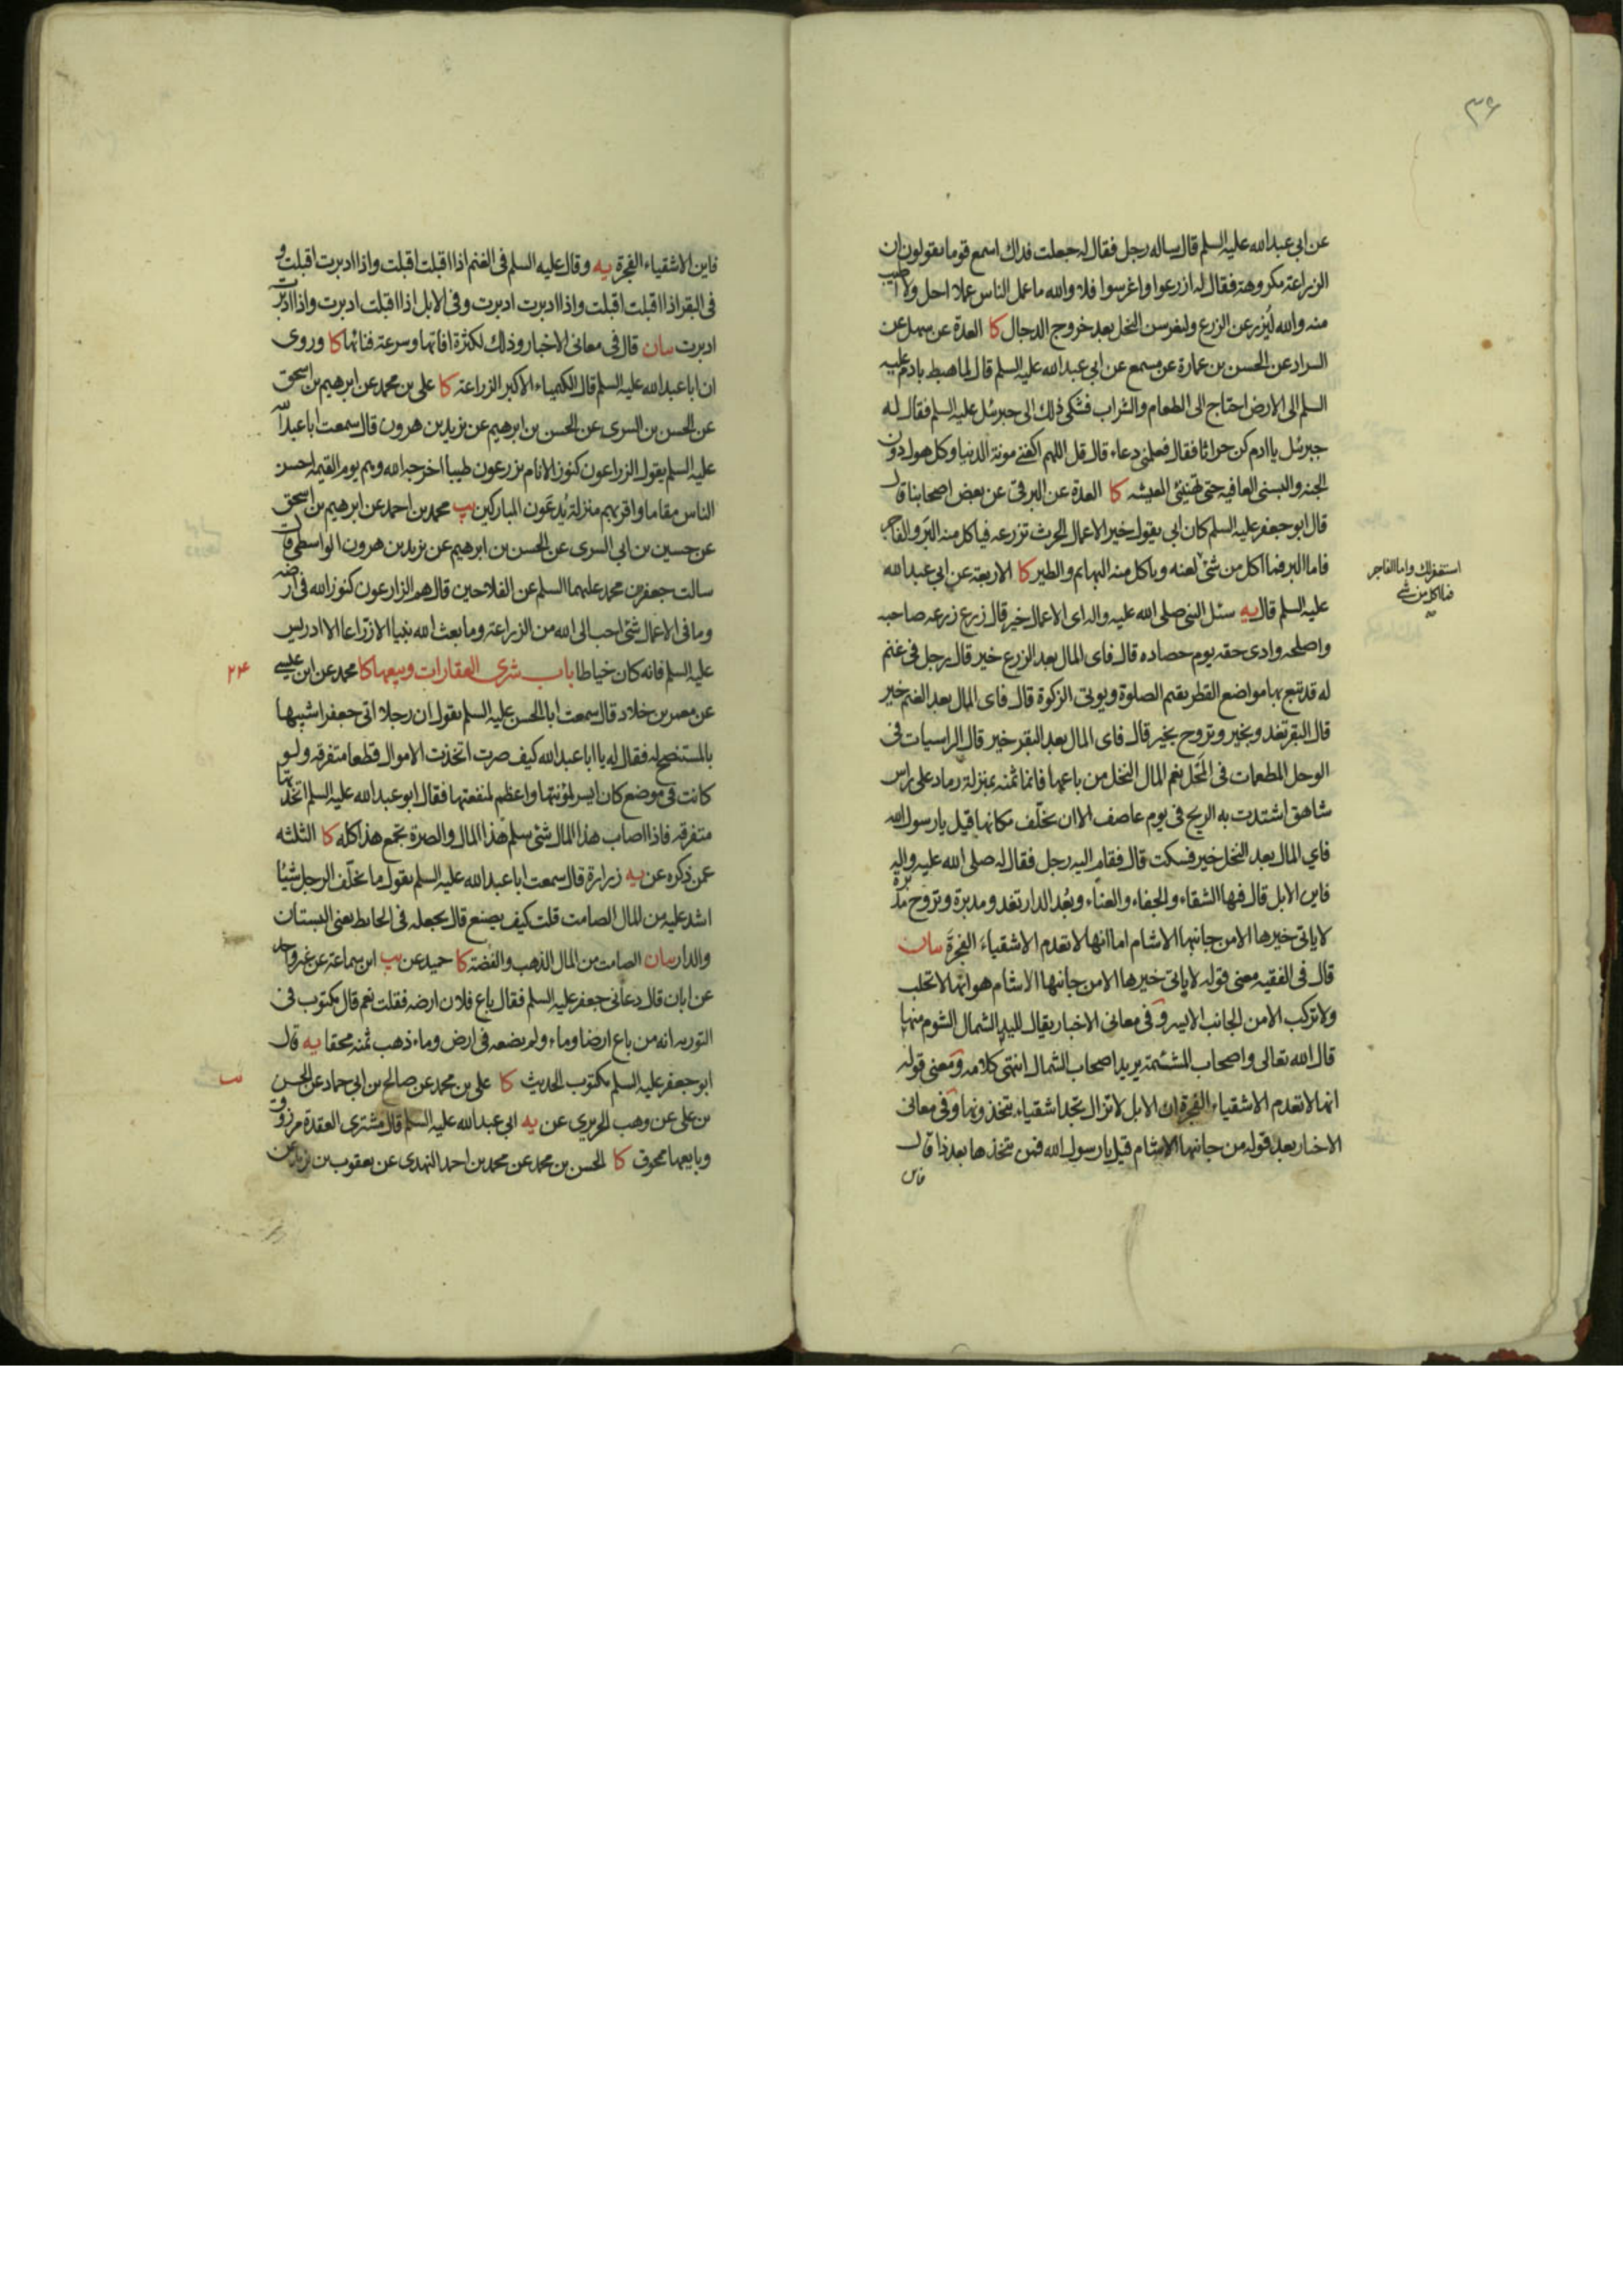 ٣۶
عن ابی عبدالله علیه السلم قال ساله رجل فقال له جعلت فداك اسمع قوما یقولون ان
الزراعة مكروهة فقال له ازرعوا واغرسوا فلا والله ما عمل الناس عملا احل ولا اطیب
منه والله لیزرعن الزرع ولیغرسن النخل بعد خروج الدجال كا العدة عن سهل عن
السراد عن الحسن بن عمارة عن مسمع عن ابی عبدالله علیه السلم قال لما هبط بادم علیه
السلم الی الارض احتاج الی الطعام والشراب فشكی ذلك الی جبرئل علیه السلم فقال له
جبرئل یا ادم كن حراثا فقال فعلمنی دعاء قال قل اللهم اكفنی مونة الدنیا وكل هول دون
الجنه والبسنی العافیه حتی تهنئنی المعیشه كا العدة عن البرقی عن بعض اصحابنا قال
قال ابو جعفر علیه السلم كان ابی یقول خیر الاعمال الحرث تزرعه فیاكل منه البر والفاجر
فاما البر فما اكل من شئ لعنه ویاكل منه البهایم والطیر كا الاربعة عن ابی عبدالله
استغفر لك واما الفاجر
فما اكل من شئ
علیه السلم قال یه سئل النبی صلی الله علیه واله ای الاعمال خیر قال زرع زرعه صاحبه
واصلحه وادی حقه یوم حصاده قال فای المال بعد الزرع خیر قال رجل فی غنم
له قد تبع بها مواضع القطر یقیم الصلوة ویوتی الزكوة قال فای المال بعد الغنم خیر
قال البقر تغدو بخیر وتروح بخیر قال فای المال بعد البقر خیر قال الراسیات فی
الوحل المطعمات فی المحل نعم المال النخل من باعها فانما ثمنه بمنزلة رماد علی راس
شاهق اشتدت به الریح فی یوم عاصف الا ان یخلف مكانها قیل یا رسول الله
فای المال بعد النخل خیر فسكت قال فقام الیه رجل فقال له صلی الله علیه واله
فاین الابل قال فیها الشقاء والجفاء والعناء وبعد الدار تغدو مدبرة وتروح مدبرة
لا یاتی خیرها الا من جانبها الاشام اما انها لا تعدم الاشقیاء الفجرة بیان
قال فی الفقیه معنی قوله لا یاتی خیرها الا من جانبها الاشام هو انها لا تحلب
ولا تركب الا من الجانب الایسر وفی معانی الاخبار یقال للید الشمال الشوم منها
قال الله تعالی واصحاب المشئمة یرید اصحاب الشمال انتهی كلامه ومعنی قوله
انها لا تعدم الاشقیاء الفجرة ان الابل لا تزال تجد اشقیاء یتخذونها وفی معانی
الاخبار بعد قوله من جانبها الاشام قیل یا رسول الله فمن یتخذها بعد ذا قال
فاین
فاین الاشقیاء الفجرة یه وقال علیه السلم فی الغنم اذا اقبلت اقبلت واذا ادبرت اقبلت و
فی البقر اذا اقبلت اقبلت واذا ادبرت ادبرت وفی الابل اذا اقبلت ادبرت واذا ادبرت
ادبرت بیان قال فی معانی الاخبار وذلك لكثرة افاتها وسرعة فنائها كا وروی
ان ابا عبدالله علیه السلم قال الكیمیاء الاكبر الزراعة كا علی بن محمد عن ابرهیم بن اسحق
عن الحسن بن السری عن الحسن بن ابرهیم عن یزید بن هرون قال سمعت ابا عبدالله
علیه السلم یقول الزراعون كنوز الانام یزرعون طیبا اخرجه الله وهم یوم القیمه احسن
الناس مقاما واقربهم منزلة یدعون المباركین یب محمد بن احمد عن ابرهیم بن اسحق
عن حسین بن ابی السری عن الحسن بن ابرهیم عن یزید بن هرون الواسطی قال
سالت جعفر بن محمد علیهما السلم عن الفلاحین قال هم الزارعون كنوز الله فی ارضه
وما فی الاعمال شئ احب الی الله من الزراعة وما بعث الله نبیا الا زراعا الا ادریس
علیه السلم فانه كان خیاطا باب شری العقارات وبیعها كا محمد عن ابن عیسی
٢۴
عن معمر بن خلاد قال سمعت ابا الحسن علیه السلم یقول ان رجلا اتی جعفرا شبیها
بالمستنصح له فقال له یا ابا عبدالله كیف صرت اتخذت الاموال قطعا متفرقه ولو
كانت فی موضع كان ایسر لمؤنتها واعظم لمنفعتها فقال ابو عبدالله علیه السلم اتخذتها
متفرقه فاذا اصاب هذا المال شئ سلم هذا المال والصرة تجمع هذا كله كا الثلثه
عمن ذكره عن یه زرارة قال سمعت ابا عبدالله علیه السلم یقول ما یخلف الرجل شیئا
اشد علیه من المال الصامت قلت كیف یصنع قال یجعله فی الحایط یعنی البستان
والدار بیان الصامت من المال الذهب والفضة كا حمید عن یب ابن سماعة عن غیر واحد
عن ابان قال دعانی جعفر علیه السلم فقال باع فلان ارضه فقلت نعم قال مكتوب فی
التوریه انه من باع ارضا وماء ولم یضعه فی ارض وماء ذهب ثمنه محقا یه قال
ابو جعفر علیه السلم مكتوب الحدیث كا علی بن محمد عن صالح بن ابی حماد عن الحسن
بن علی عن وهب الحریری عن یه ابی عبدالله علیه السلم قال مشتری العقدة مرزوق
وبایعها محوق كا الحسن بن محمد عن محمد بن احمد النهدی عن یعقوب بن یزید عن